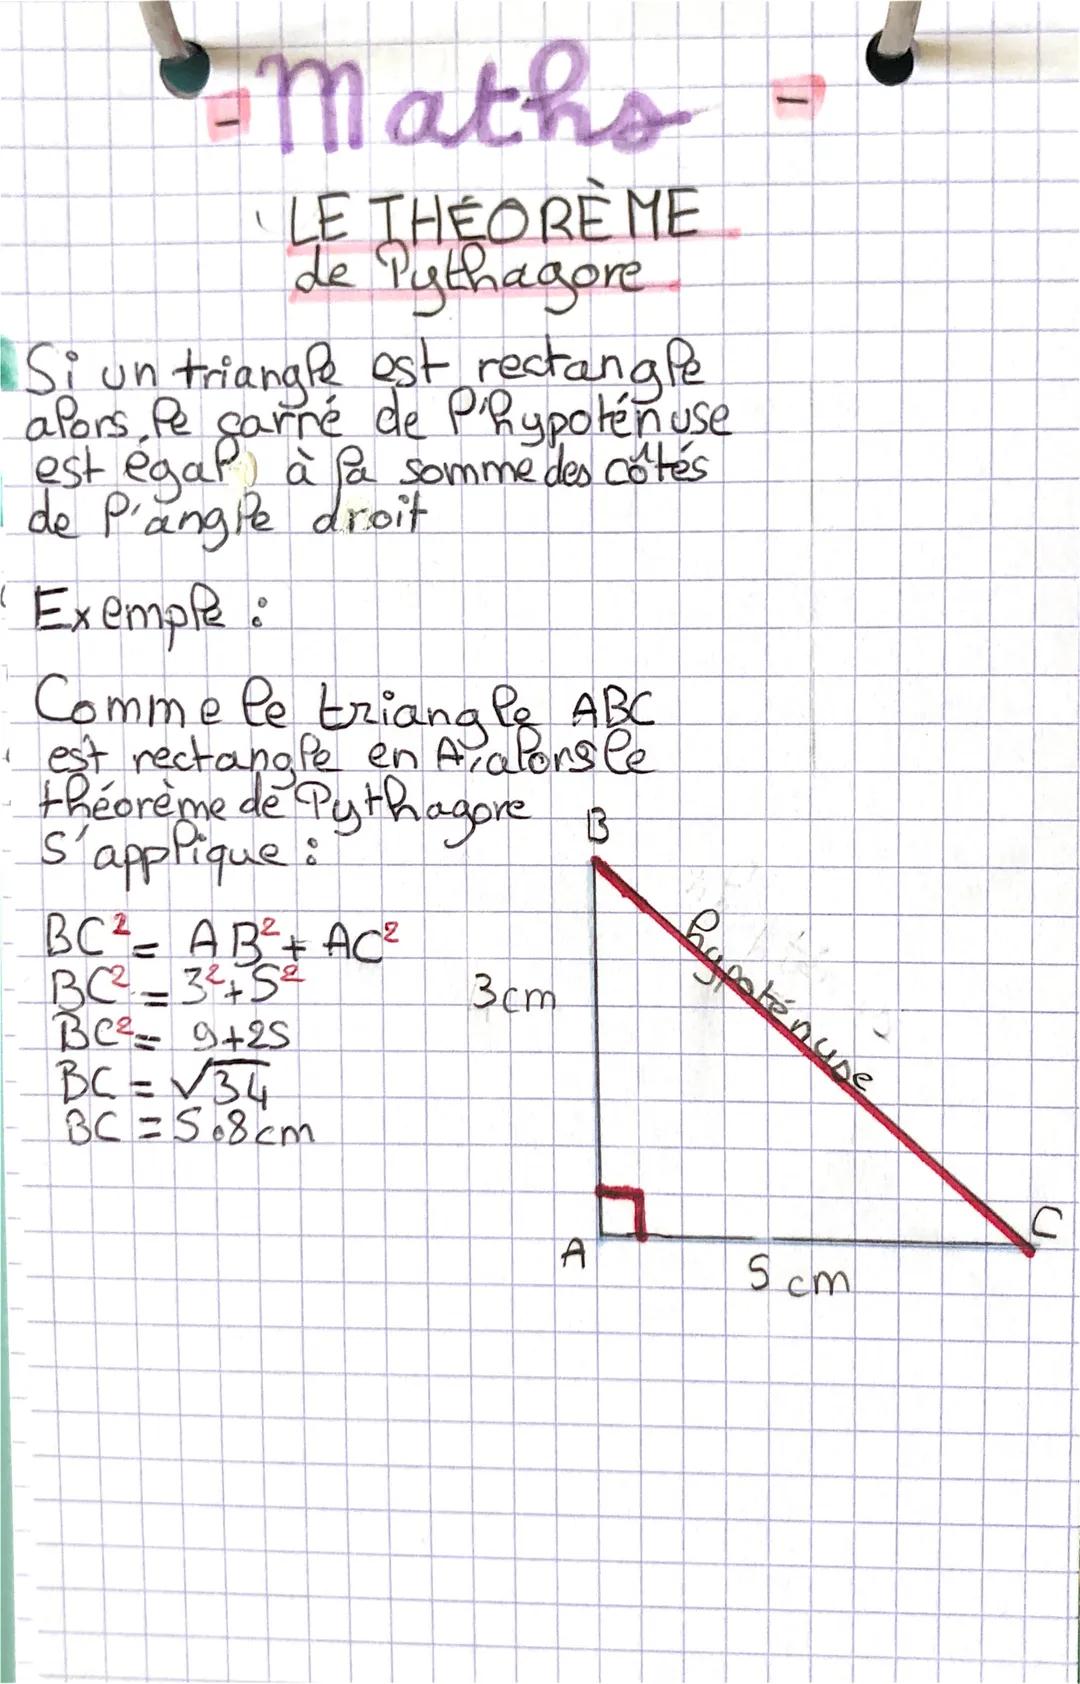 - Maths -
LE THÉORÈME
de Pythagore
Si un triangle est rectangle
alors le carré de l'hypoténuse
est égal à la somme des côtés
de l'angle droit
Exemple :
Comme le triangle ABC
est rectangle en A, alors le
théorème de Pythagore
s'applique :
BC² = AB² + AC²
BC² = 3² + 5²
BC² = 9+25
BC = √34
BC = 5.8cm
B
hypoténuse
3cm
A
5 cm
C